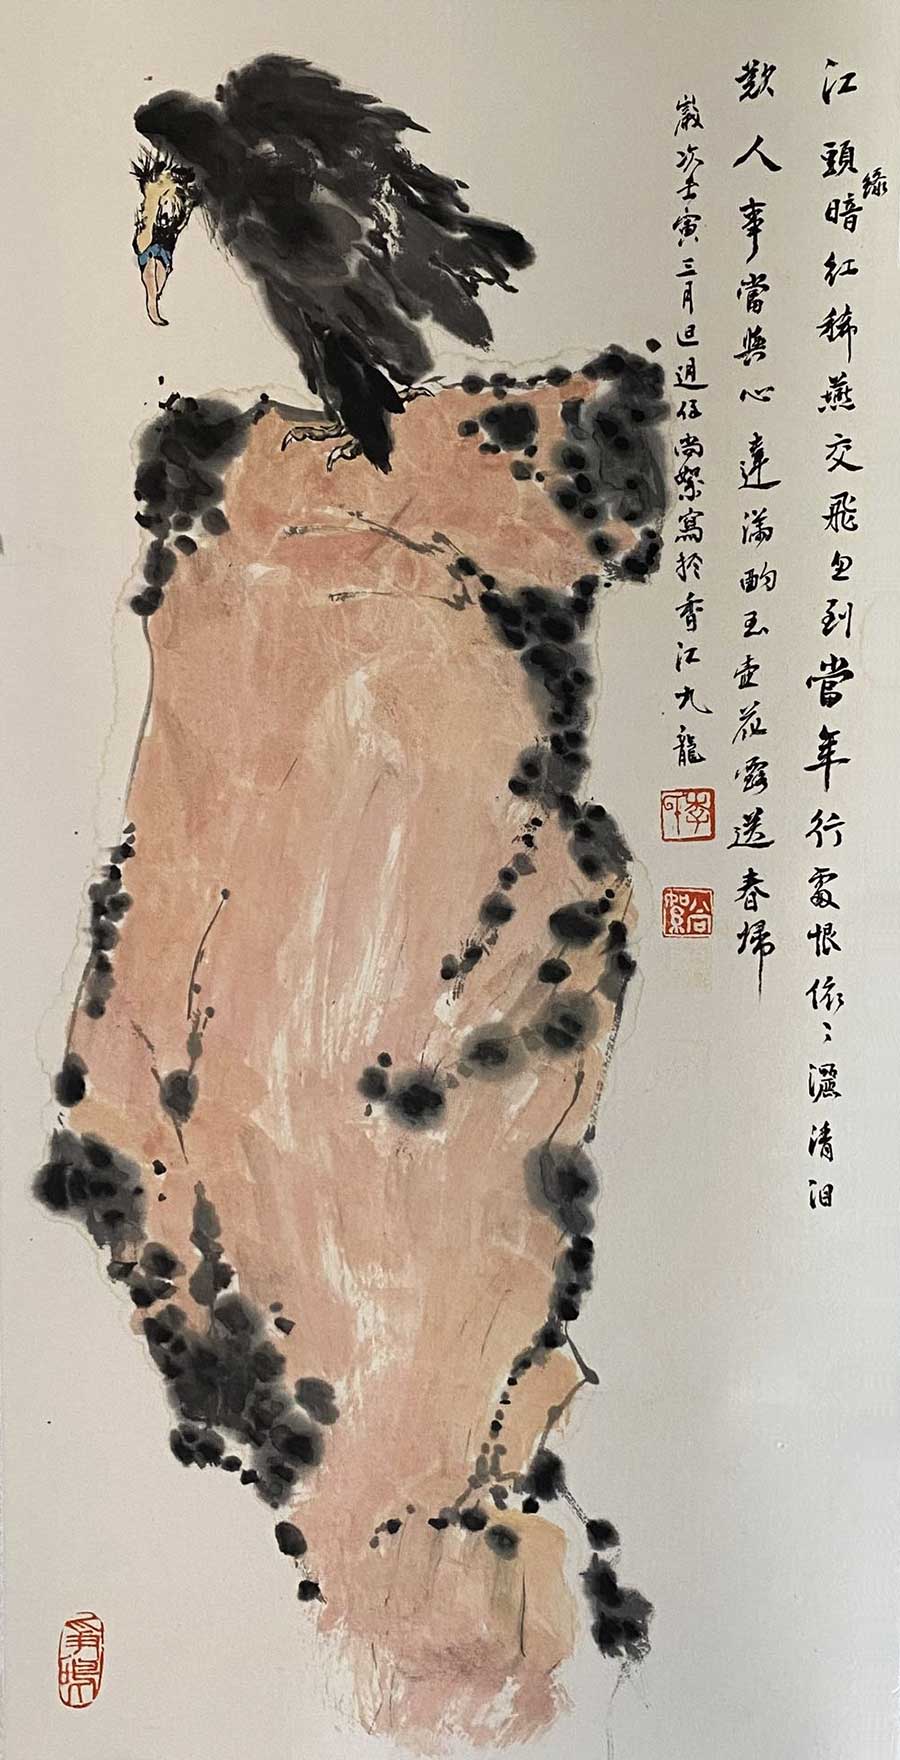 江頭暗紅稀燕交飛忽到當年行處恨依〻灑清泪
綠
歎人事當與心違滿酌玉壺花露送春歸
歲次壬寅三月尚絮寫於香江九龍
尚絮
爭鳴